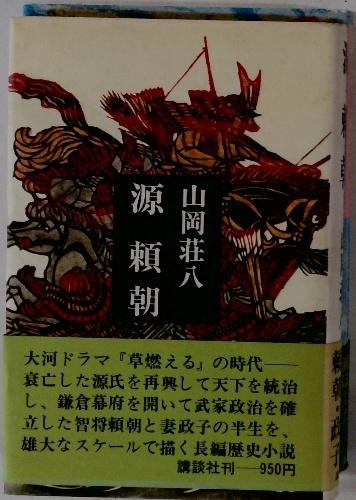 山岡荘八
源 頼朝
大河ドラマ『草燃える』の時代――
衰亡した源氏を再興して天下を統治
し、鎌倉幕府を開いて武家政治を確
立した智将頼朝と妻政子の半生を、
雄大なスケールで描く長編歴史小説
講談社刊──950円
源 頼 朝
頼朝・政子